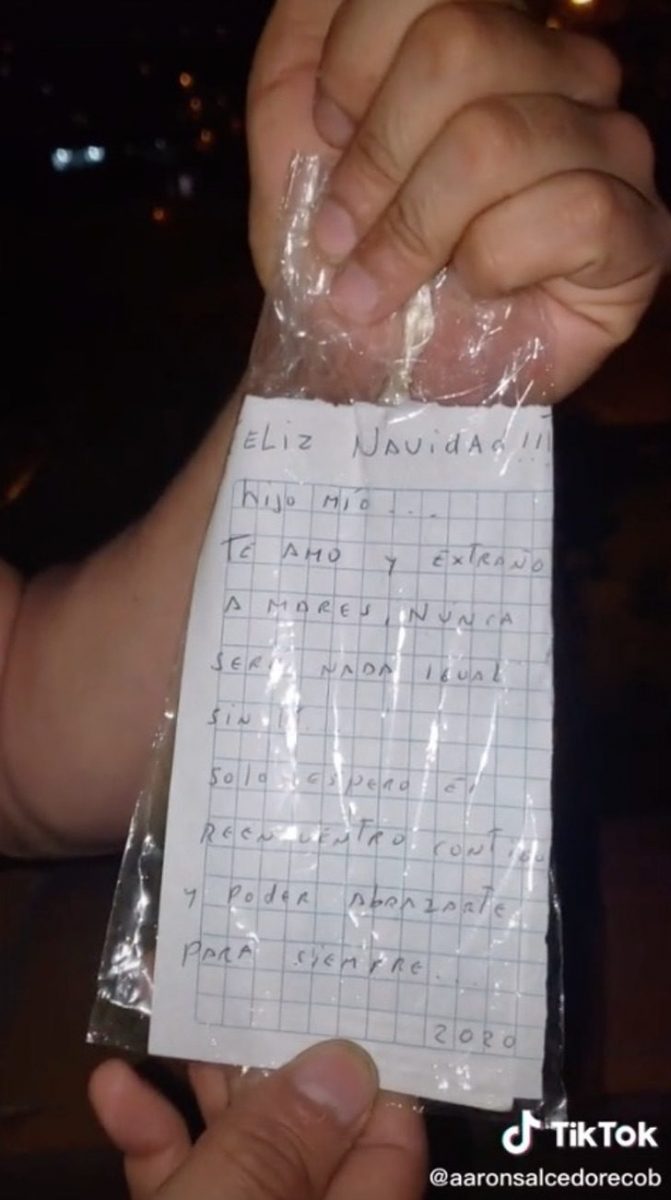 ELIZ NAVIDAD!!!
hijo MÍO...
TE AMO Y EXTRAÑO
A MARES, NUNCA
SERÁ NADA IGUAL
SIN TÍ.
Solo ESPERO EL
REENCUENTRO CONTIGO
Y PodER AbRAZARTE
PARA SIEMPRE....
2020
TikTok
@aaronsalcedorecob